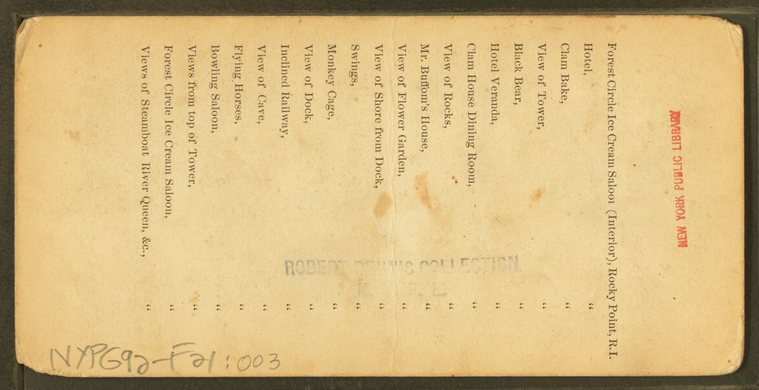 Forest Circle Ice Cream Saloon (Interior), Rocky Point, R.I.
Hotel, "
Clam Bake, "
View of Tower, "
Black Bear, "
Hotel Veranda, "
Clam House Dining Room, "
View of Rocks, "
Mr. Buffom's House, "
View of Flower Garden, "
View of Shore from Dock, "
Swings, "
Monkey Cage, "
View of Dock, "
Inclined Railway, "
View of Cave, "
Flying Horses, "
Bowling Saloon, "
Views from top of Tower, "
Forest Circle Ice Cream Saloon, "
Views of Steamboat River Queen, &c., "
NEW YORK PUBLIC LIBRARY
ROBERT DENNIS COLLECTION
NYPG92-F21:003